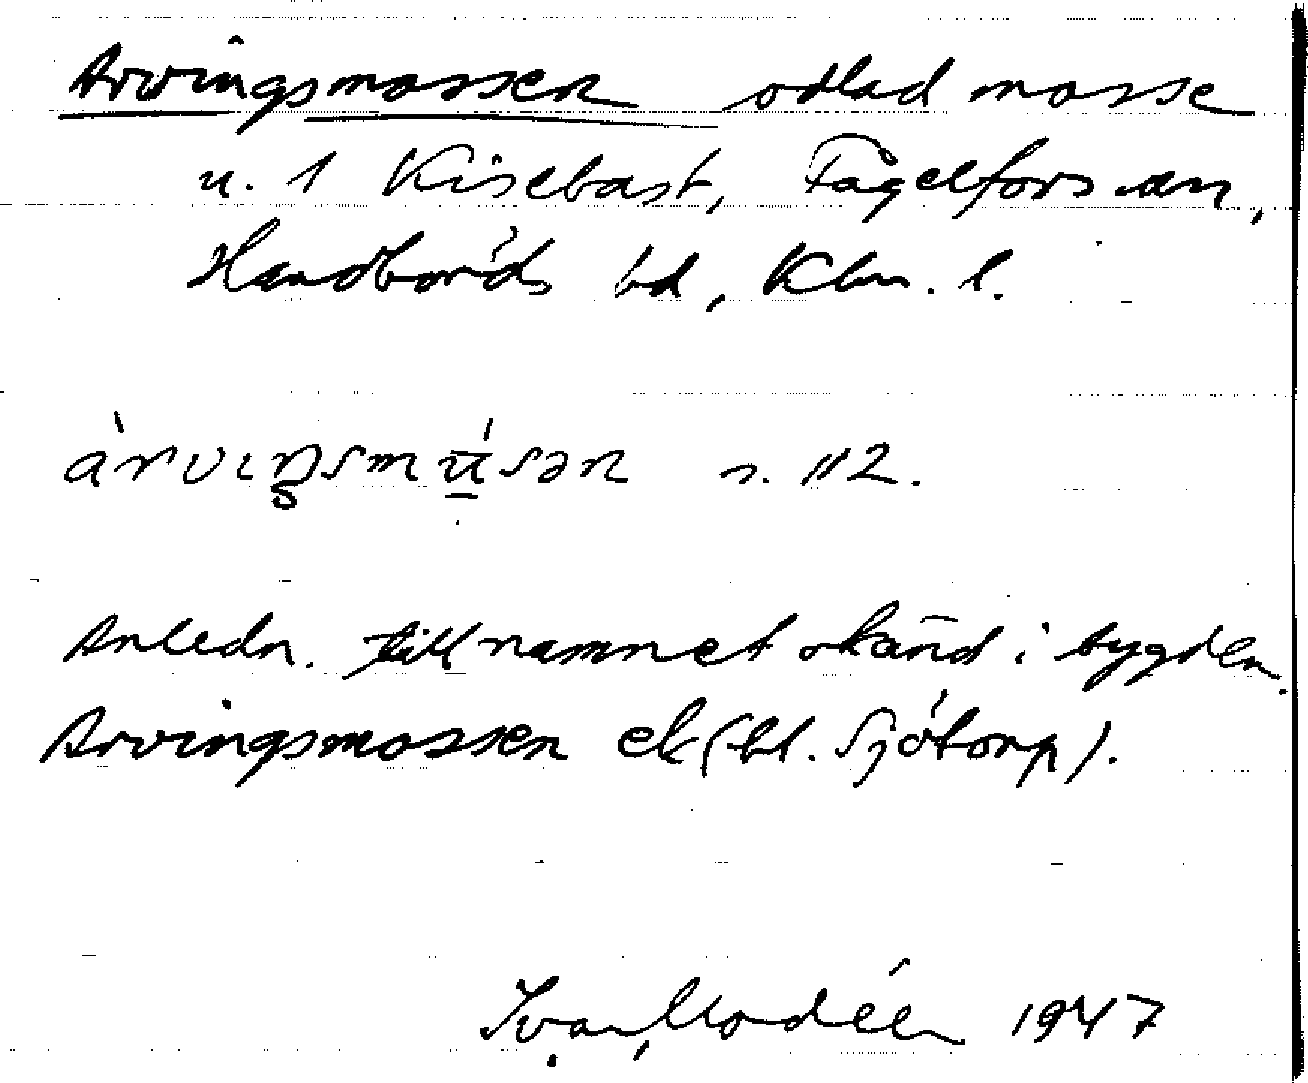 Arvingsmossen odlad mosse
u. 1 Kisebast, Fågelfors sn,
Handbörds hd, Klm. l.
árvıŋsmu̲̇sən s. 112.
Anledn. till namnet okänd i bygden.
Arvingsmossen ek (bl. Sjötorp).
Ivar Modéer 1947